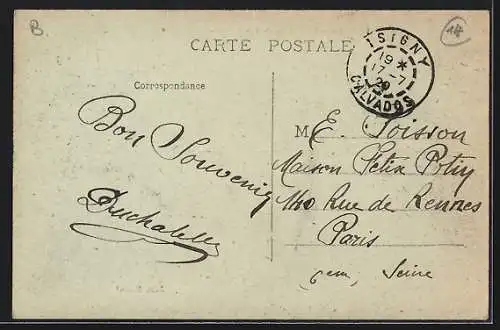 B.
CARTE POSTALE
ISIGNY
19 *
17-7
20
CALVADOS
Correspondance
Bon Souvenir
Duchatelle
M E. Poisson
Maison Felix Potin
140 Rue de Rennes
Paris
Seine